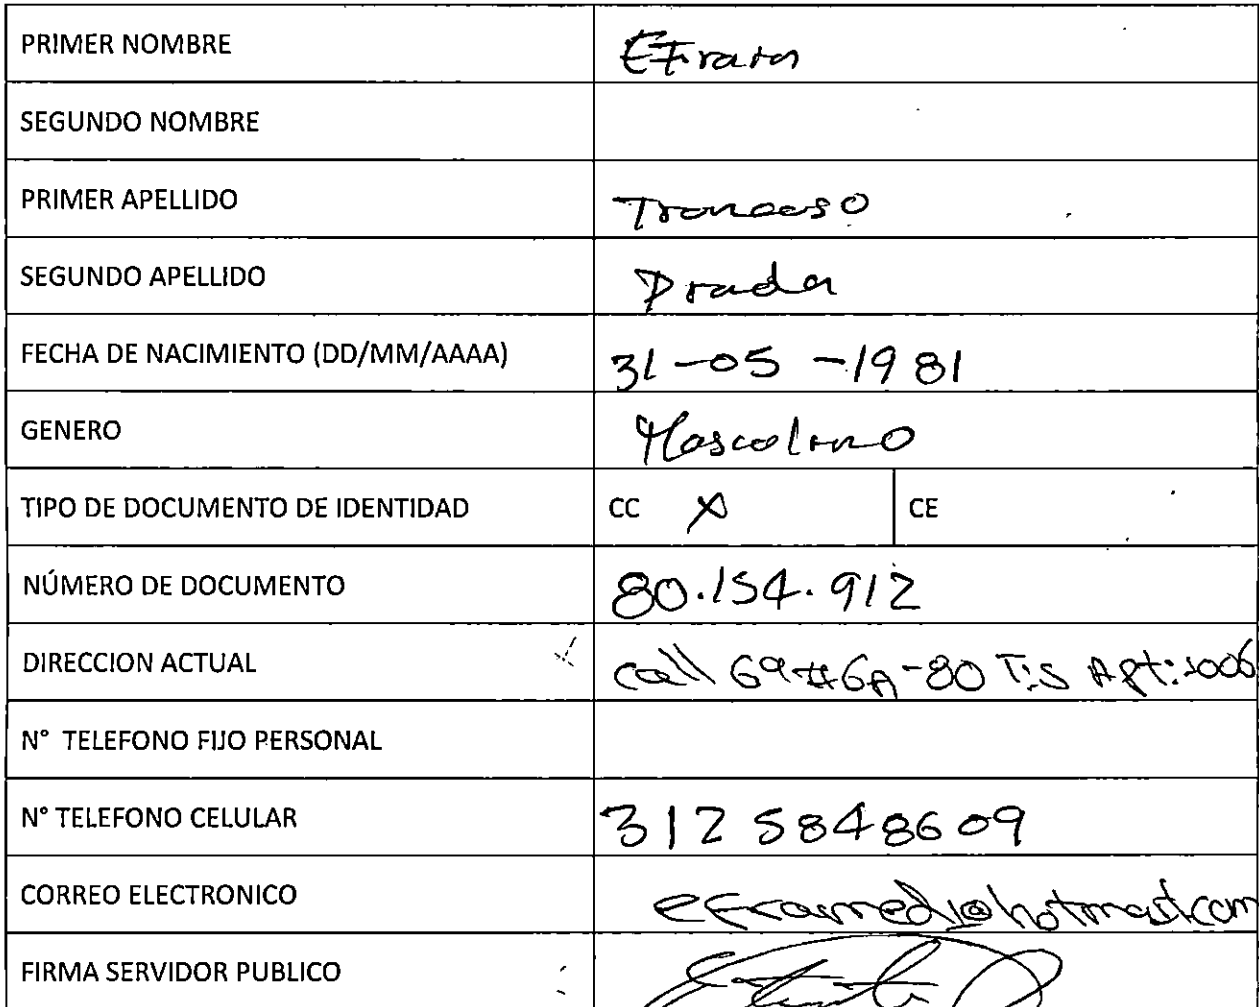 PRIMER NOMBRE Efrain
SEGUNDO NOMBRE
PRIMER APELLIDO Troncoso
SEGUNDO APELLIDO Prada
FECHA DE NACIMIENTO (DD/MM/AAAA) 31-05-1981
GENERO Masculino
TIPO DE DOCUMENTO DE IDENTIDAD CC X CE
NÚMERO DE DOCUMENTO 80.154.912
DIRECCION ACTUAL call 69#6A-80 Apt: 1006
N° TELEFONO FIJO PERSONAL
N° TELEFONO CELULAR 312 5848609
CORREO ELECTRONICO
FIRMA SERVIDOR PUBLICO